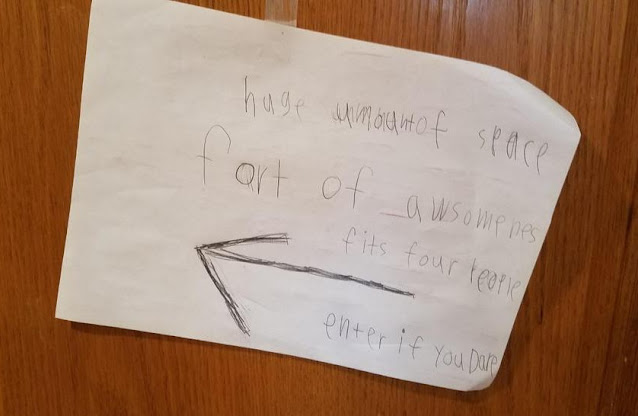 huge amountof space
fort of awsomenes
fits four people
enter if you Dare